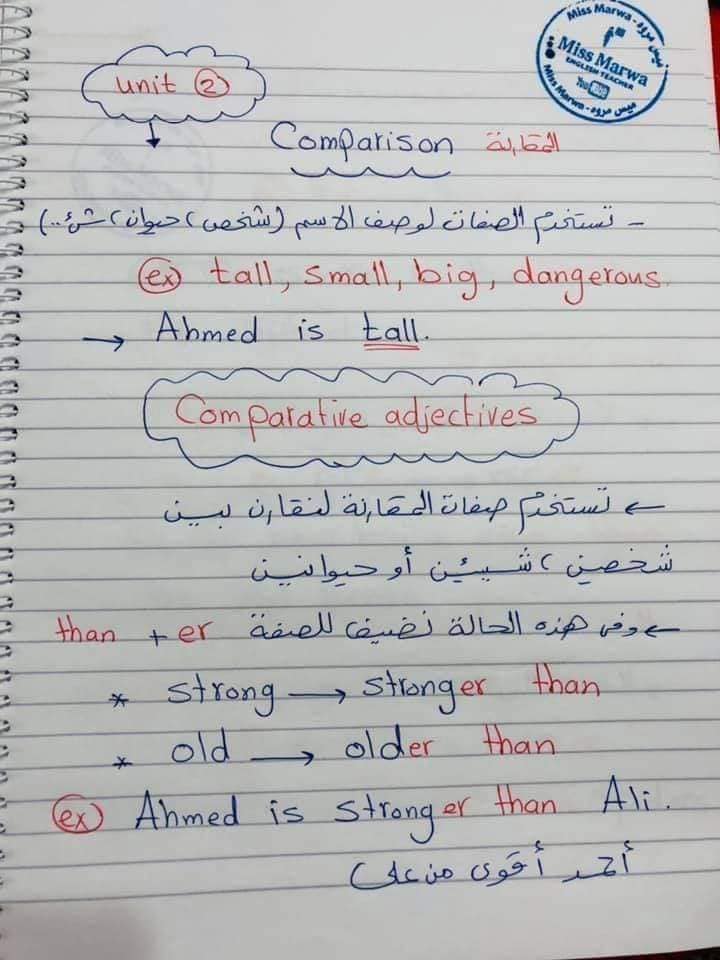 Miss Marwa - ميس مروه
Miss Marwa
ENGLISH TEACHER
You Tube
Miss Marwa - ميس مروه
unit ②
Comparison المقارنة
- تستخدم الصفات لوصف الاسم (شخص، حيوان، شئ..)
ex tall, small, big, dangerous.
→ Ahmed is tall.
Comparative adjectives
← تستخدم صفات المقارنة لنقارن بين
شخصين، شيئين أو حيوانين
← وفى هذه الحالة نضيف للصفة er + than
* strong → stronger than
* old → older than
ex Ahmed is stronger than Ali.
أحمد أقوى من على